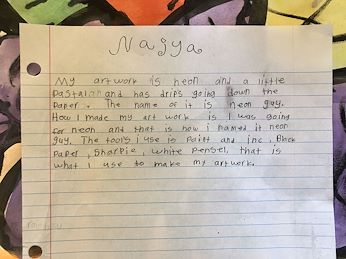 Najya
My artwork is neon and a little
pastal and has drips going down the
paper. The name of it is neon guy.
How I made my art work is I was going
for neon and that is how i named it neon
guy. The tools i use is Paint and inc, Black
paper, Sharpie, white pensel, that is
what I use to make my artwork.